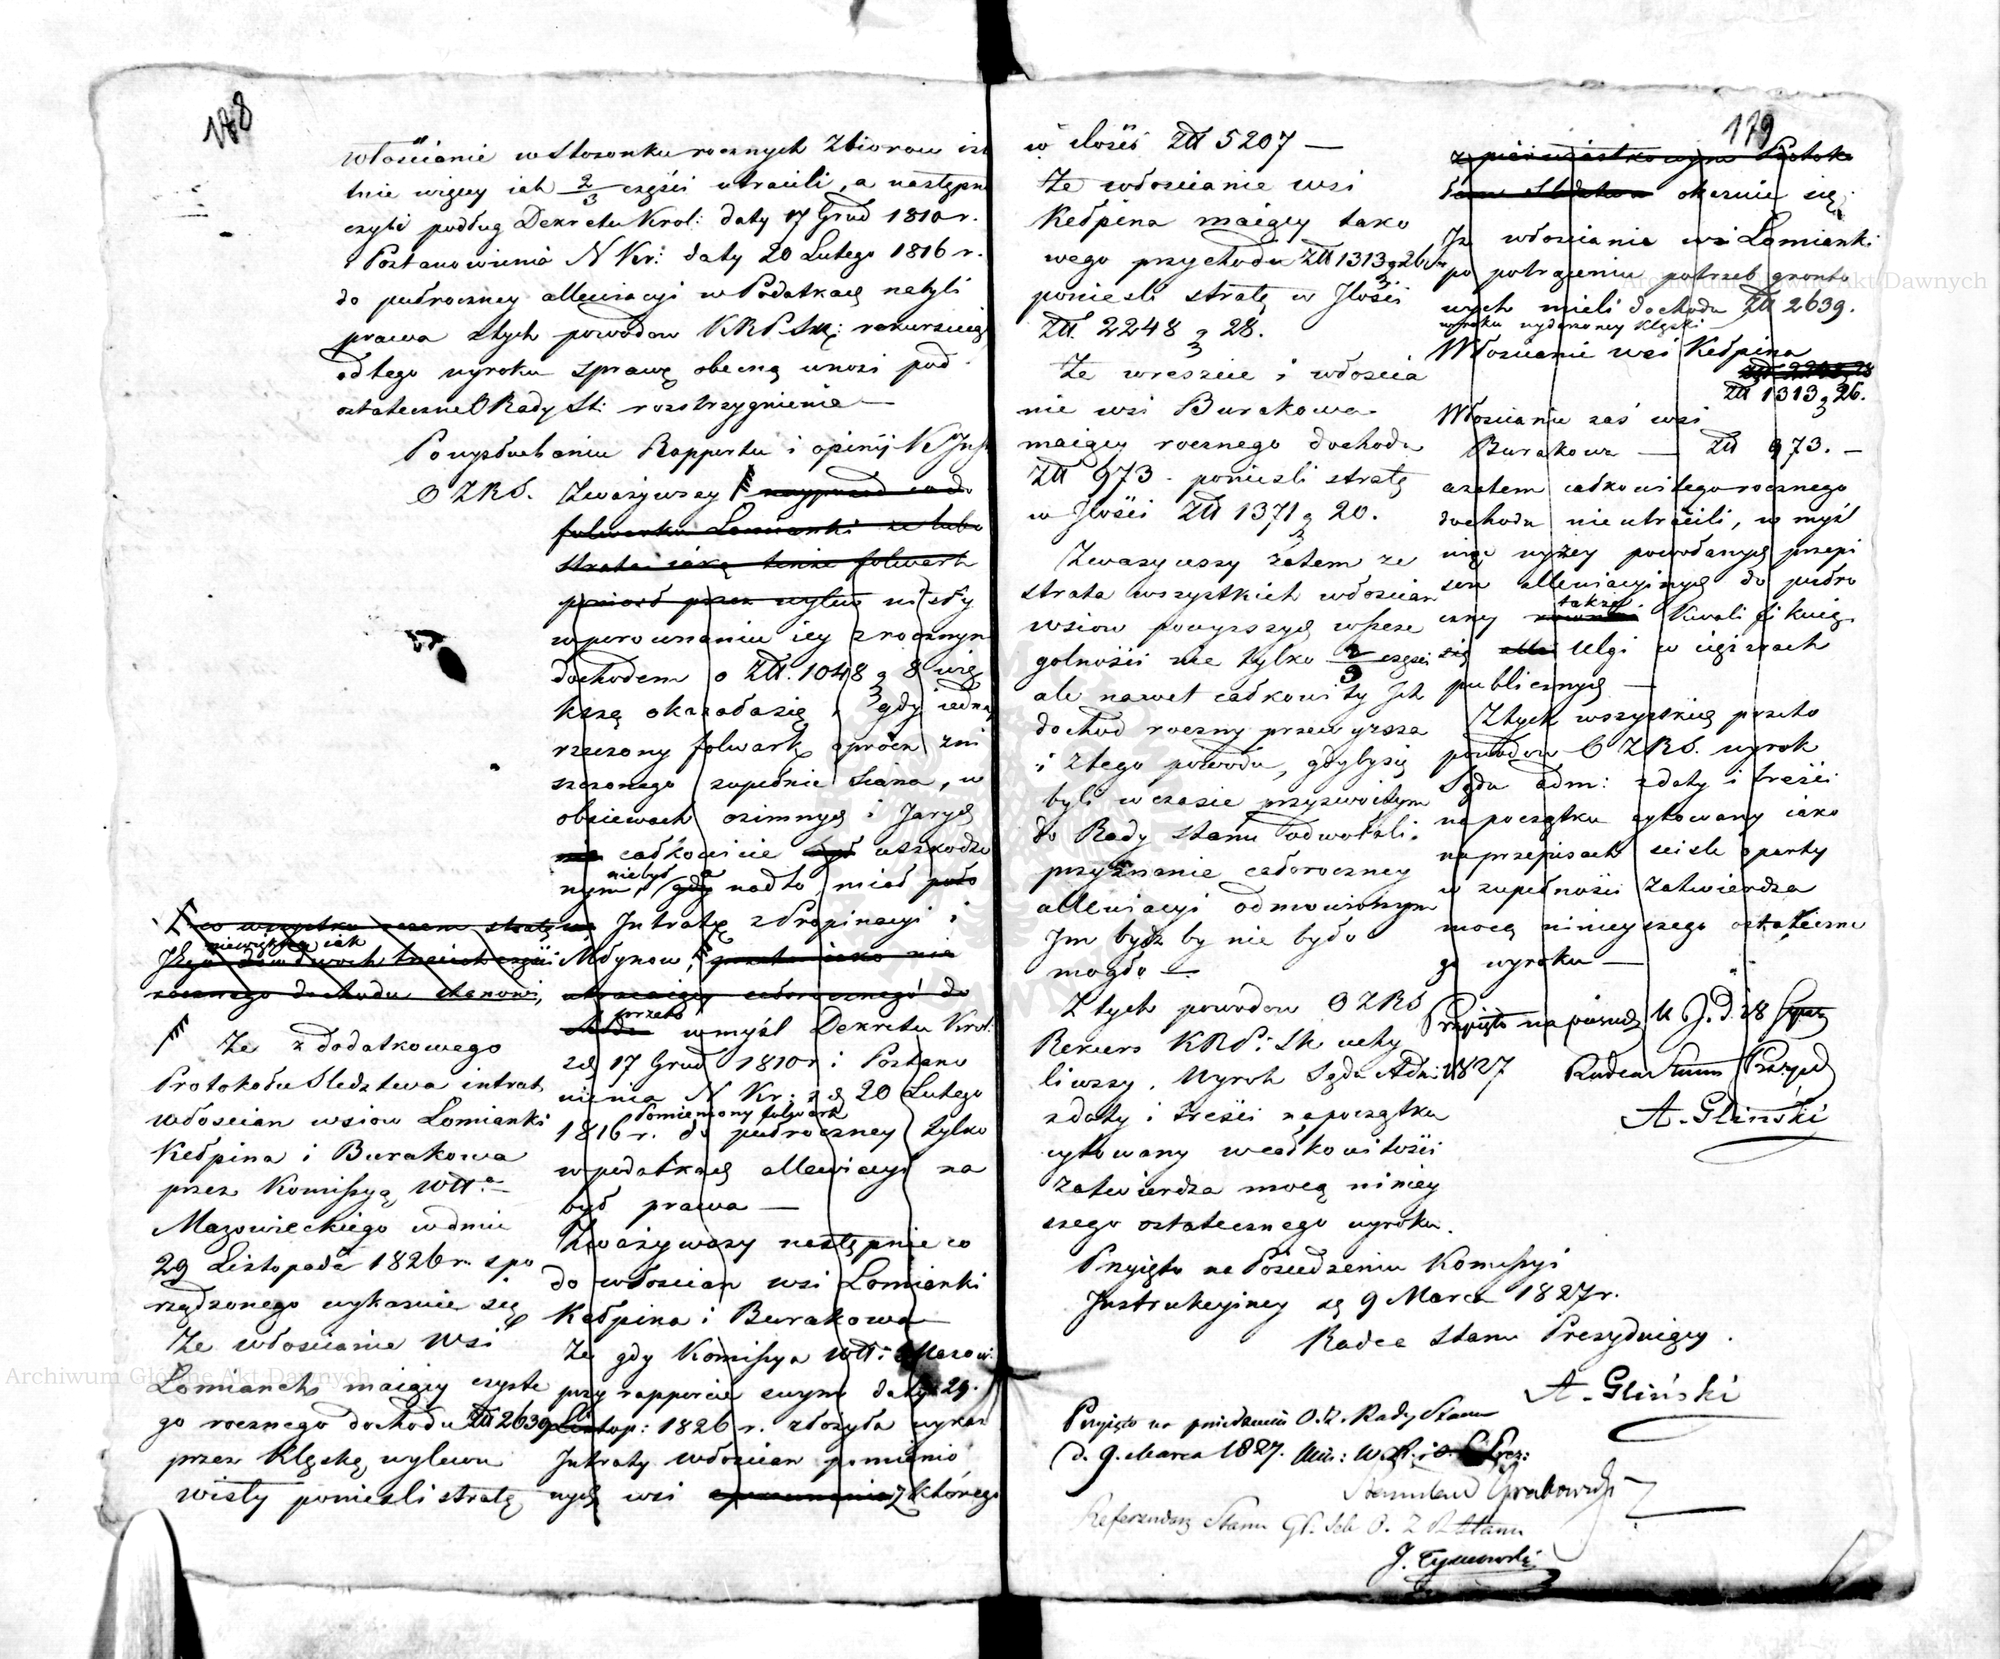 178
włościanie w stosonku rocznych Zbiorow ist
tnie więcey iak 2/3 części utracili, a następn
czyli podług Dekretu Krol: daty 17 Grud 1810 r.
i Postanowienia N Kr: daty 20 Lutego 1816 r.
do pułroczney allewiacyi w Podatkach nabyli
prawa z tych powodow
od tego wyroku sprawę obecną wnosi pod
ostateczne O Rady St: rozstrzygnienie —
Po wysłuchaniu Rapportu i opinij K Jns
O Z R S. Zważywszy nayprzod co do
folwarku Łomianki ze lubo
strata iaką tenże folwark
poniosł przez wylew wisły
w porownaniu iey z rocznym
dochodem o Złł. 1048 g 8 wię
kszą okazała się, gdy iedna
rzeczony folwark oprocz zni
szczonego zupełnie Siana, w
obsiewach ozimnych i Jarych
całkowicie był uszkodzo
niebył a
nym, gdy nadto miał poło
Intratę z Propinacyi i
Młynow, przeto iako nie
utracaiący całorocznego do
przeto
w myśl Dekretu Krol:
z d 17 Grud 1810 r i Postano
wienia N Kr: z d 20 Lutego
Pomieniony folwark
1816 r. do pułroczney tylko
w podatkach allewiacyi na
był prawa —
Zważywszy następnie co
do włościan wsi Łomianki
Kełpina i Burakowa
Ze gdy Komissya Wtt: Mazow:
przy rapporcie swym daty 29.
Listop: 1826 r. złożyła wykaz
Intraty włościan pomienio
nych wsi z którego
co wszystko razem stratę
niewiększą iak
Jego dwoch trzecich części
rocznego dochodu stanowi,
Ze z dodatkowego
Protokołu Sledztwa intrat
włościan wsiow Łomianki
Kełpina i Burakowa
przez Komissyą Wtt.a
Mazowieckiego w dniu
29 Listopada 1826 r. spo
rządzonego wykazuie się
Ze włościanie wsi
Łomianek maiący czyste
go rocznego dochodu Złł 2639
przez klęskę wylewu
wisły ponieśli stratę
179
w Jlości Złł 5207 —
Ze włościanie wsi
Kełpina maiący tako
wego przychodu Złł 1313 g 26
ponieśli stratę w Jlości
Złł. 2248 g 28.
Ze wreszcie i włościa
nie wsi Burakowa
maiący rocznego dochodu
Złł 973. ponieśli stratę
w Jlości Złł 1371 g 20.
Zwazywszy zatem ze
strata wszystkich włościan
wsiow powyzszych w szcze
golności nie tylko 2/3 części
ale nawet całkowity Jch
dochod roczny przewyzsza
i z tego powodu, gdyby się
byli w czasie przyzwoitym
do Rady Stanu odwołali,
przyznanie całoroczney
allewiacyi odmowionym
Jm bydz by nie było
mogło —
Z tych powodow O Z R S
Rekurs K R P: Sk uchy
liwszy, Wyrok Sądu Adm:
z daty i treści na początku
cytowany w całkowitości
zatwierdza mocą niniey
szego ostatecznego wyroku.
Przyięto na Posiedzeniu Komissyi
Jnstrukcyiney d 9 Marca 1827 r.
Radca Stanu Prezyduiący.
A. Gliński
Przyięto na posiedzeniu O. Z. Rady Stanu
d. 9. Marca 1827.
Stanisław Grabowski
Referendarz Stanu O. Z R Stanu
J. Tymowski
z pierwiastkowym Protoko
łem Sledztwa okazuie się:
Ze włościanie wsi Łomianki
po potrąceniu potrzeb gronto
wych mieli dochodu Złł 2639.
w roku wydarzoney klęski
Włościanie wsi Kełpina
Złł 1313 g 26.
Włościanie zaś wsi
Burakowa — Złł 973. —
a zatem całkowitego rocznego
dochodu nie utracili, w myśl
więc wyzey powołanych przepi
sow allewiacyinych do pułro
czney także kwalifikuią
się ulgi w ciężarach
publicznych —
Z tych wszystkich przeto
powodow O Z R S. wyrok
Sądu adm: z daty i treści
na początku cytowany iako
na przepisach ściśle oparty
w zupełności zatwierdza
mocą ninieyszego ostateczne
go wyroku —
Przyięto na posiedz K J. d. 28
1827 Radca Stanu Prezyd
A. Gliński
Archiwum Główne Akt Dawnych
Archiwum Główne Akt Dawnych